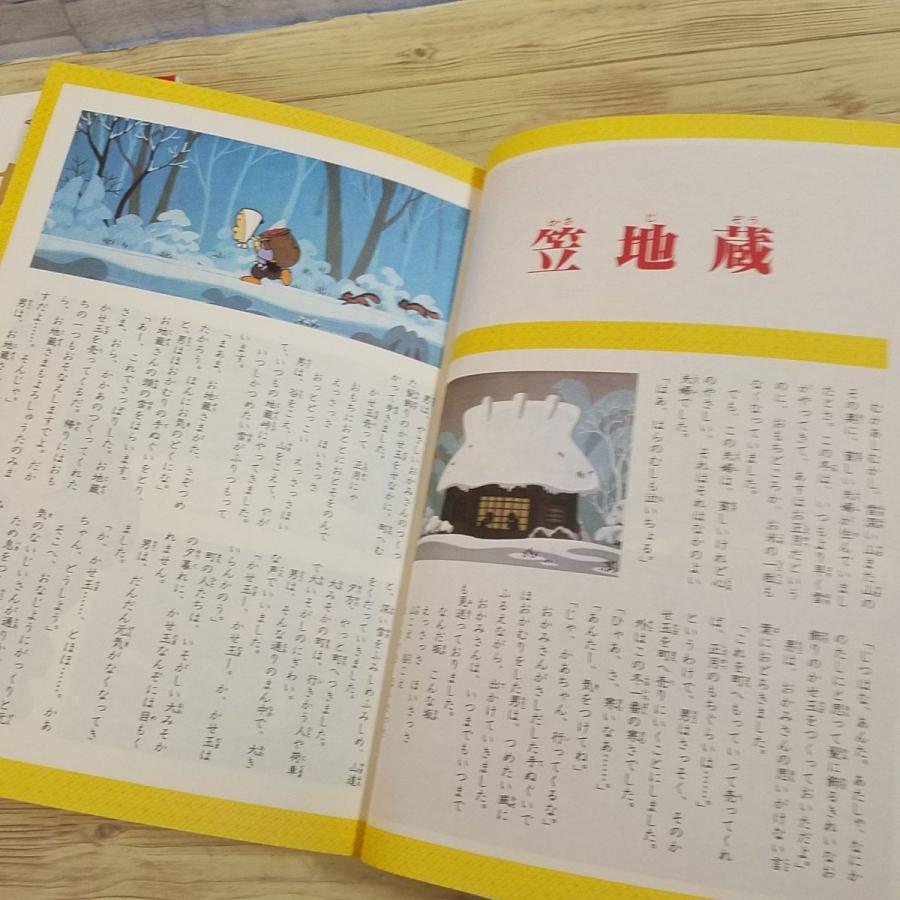 笠地蔵
かさじぞう
むかあしむかし、雪深い山また山の
その奥に、貧しい夫婦が住んでいまし
たとさ。この冬は、いつもより早く雪
がやってきて、あすはお正月だという
のに、おもちどころか、お米の一粒も
なくなっていました。
でも、この夫婦は、貧しいけれど心
のやさしい、それはそれはなかのよい
夫婦でした。
「はあ、はらのむしも泣いちょる」
「じつはな、あんた。あたしゃ、なにか
のたしにと思って髪に飾るきれいなお
飾りのかせ玉をつくっておいただよ」
男は、おかみさんの思いがけない言
葉におどろきました。
「これを町へもっていって売ってくれ
ば、正月のもちぐらいは……」
というわけで、男はさっそく、そのか
せ玉を町へ売りにいくことにしました。
外はこの冬一番の寒さでした。
「ひゃあ、さ、寒いなあ……」
「あんたー、気をつけてね」
「じゃ、かあちゃん、行ってくるな」
おかみさんがさしだした手ぬぐいで
ほおかむりをした男は、つめたい風に
ふるえながら、出かけていきました。
おかみさんは、いつまでもいつまで
も見送っておりました。
なんだ坂 こんな坂
えっさっさ ほいさっさ
男は、やさしいおかみさんのつくっ
たかせ玉をせなかに、町へむ
かって歩きました。
かせ玉売って、正月にゃ
おもちにおとと
えっさっさ ほいさっさ
おっとどっこい えっさっさほい
男は、谷をこえ、山をこえて、やが
て、いつもの地蔵峠にやってきました。
いつしかつめたい雪がふりつもって
います。
「まあまあ、お地蔵さまがた、さぞつめ
たかろう。ほんにお気のどくにな」
と、男はほおかむりの手ぬぐいをとり、
お地蔵さんの頭の雪をはらいます。
「あー、これでさっぱりした。お地蔵
さま、おら、かかあのつくってくれた
かせ玉を売ってくるだ。帰りにはおも
ちの一つもおそなえしますでよ。だか
ら、お地蔵さまもよろしゅうたのみま
すだよ……」
男は、お
と、深い雪をふみしめふみしめ、山道
をくだっていきました。
夕方、やっと町へつきました。
大みそかの町は、行きかう人や荷車
で大いそがしのにぎわい。
男は、そんな通りのまん中で、大き
な声でいいました。
「かせ玉ー、かせ玉ー。か、かせ玉は
いらんかのう」
町の人たちは、いそがしい大みそか
の夕暮れに、かせ玉なんぞには目もく
れません。
男は、だんだん元気がなくなってき
ました。
「か、かせ玉……、とほほ……。かあ
ちゃん、どうしよう」
そこへ、おなじようにがっくりと元
気のないじいさんが通りか
ため息をつ